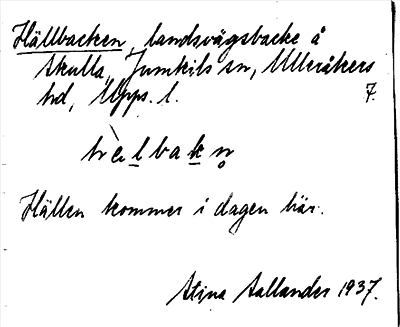 Hällbacken, landsvägsbacke å
Skulla, Jumkils sn, Ulleråkers
hd, Upps. l. 7.
hèlbakn̥
Hällen kommer i dagen här.
Stina Sallander 1937.